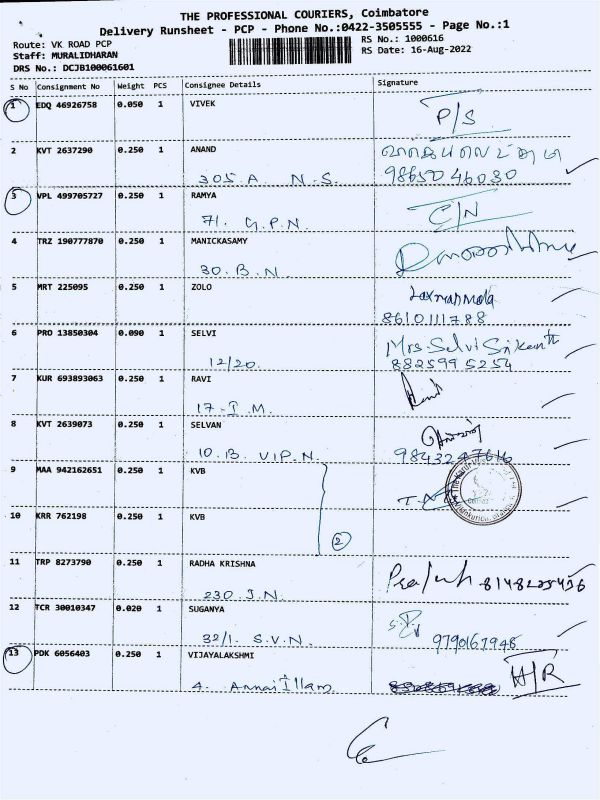 THE PROFESSIONAL COURIERS, Coimbatore
Delivery Runsheet - PCP - Phone No.:0422-3505555 - Page No.:1
Route: VK ROAD PCP
RS No.: 1000616
Staff: MURALIDHARAN
RS Date: 16-Aug-2022
DRS No.: DCJB100061601
S No Consignment No Weight PCS Consignee Details Signature
1 EDQ 46926758 0.050 1 VIVEK P/S
2 KVT 2637290 0.250 1 ANAND
305 A N.S. 98650 46030
3 VPL 499705727 0.250 1 RAMYA C/N
71. G.P.N.
4 TRZ 190777870 0.250 1 MANICKASAMY
30. B.N.
5 MRT 225095 0.250 1 ZOLO
8610111788
6 PRO 13850304 0.090 1 SELVI Mrs. Selvi Srikanth
12/20. 882599 5254
7 KUR 693893063 0.250 1 RAVI
17-I.M.
8 KVT 2639073 0.250 1 SELVAN
10.B. V.I.P.N. 98432 47616
9 MAA 942162651 0.250 1 KVB
10 KRR 762198 0.250 1 KVB
2
11 TRP 8273790 0.250 1 RADHA KRISHNA
230 J.N.
12 TCR 30010347 0.020 1 SUGANYA
32/1. S.V.N. 9790167948
13 PDK 6056403 0.250 1 VIJAYALAKSHMI H/R
4. Annai Illam